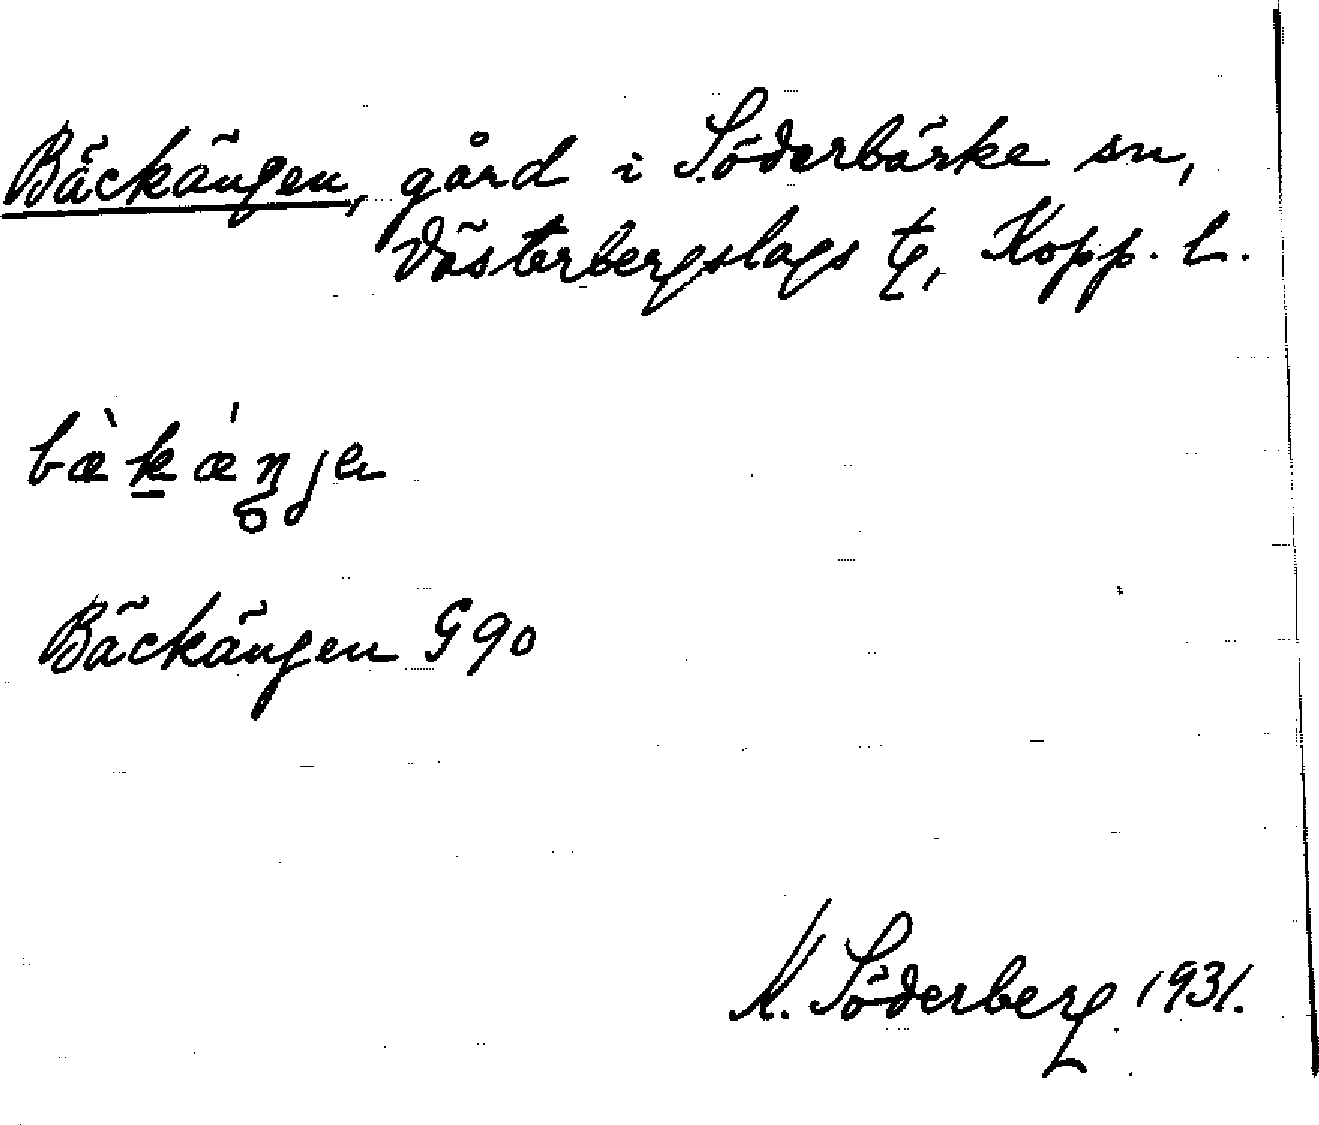 Bäckängen, gård i Söderbärke sn,
Västerbergslags tg, Kopp. L.
bæ̀kǽŋja
Bäckängen G 90
K. Söderberg 1931.